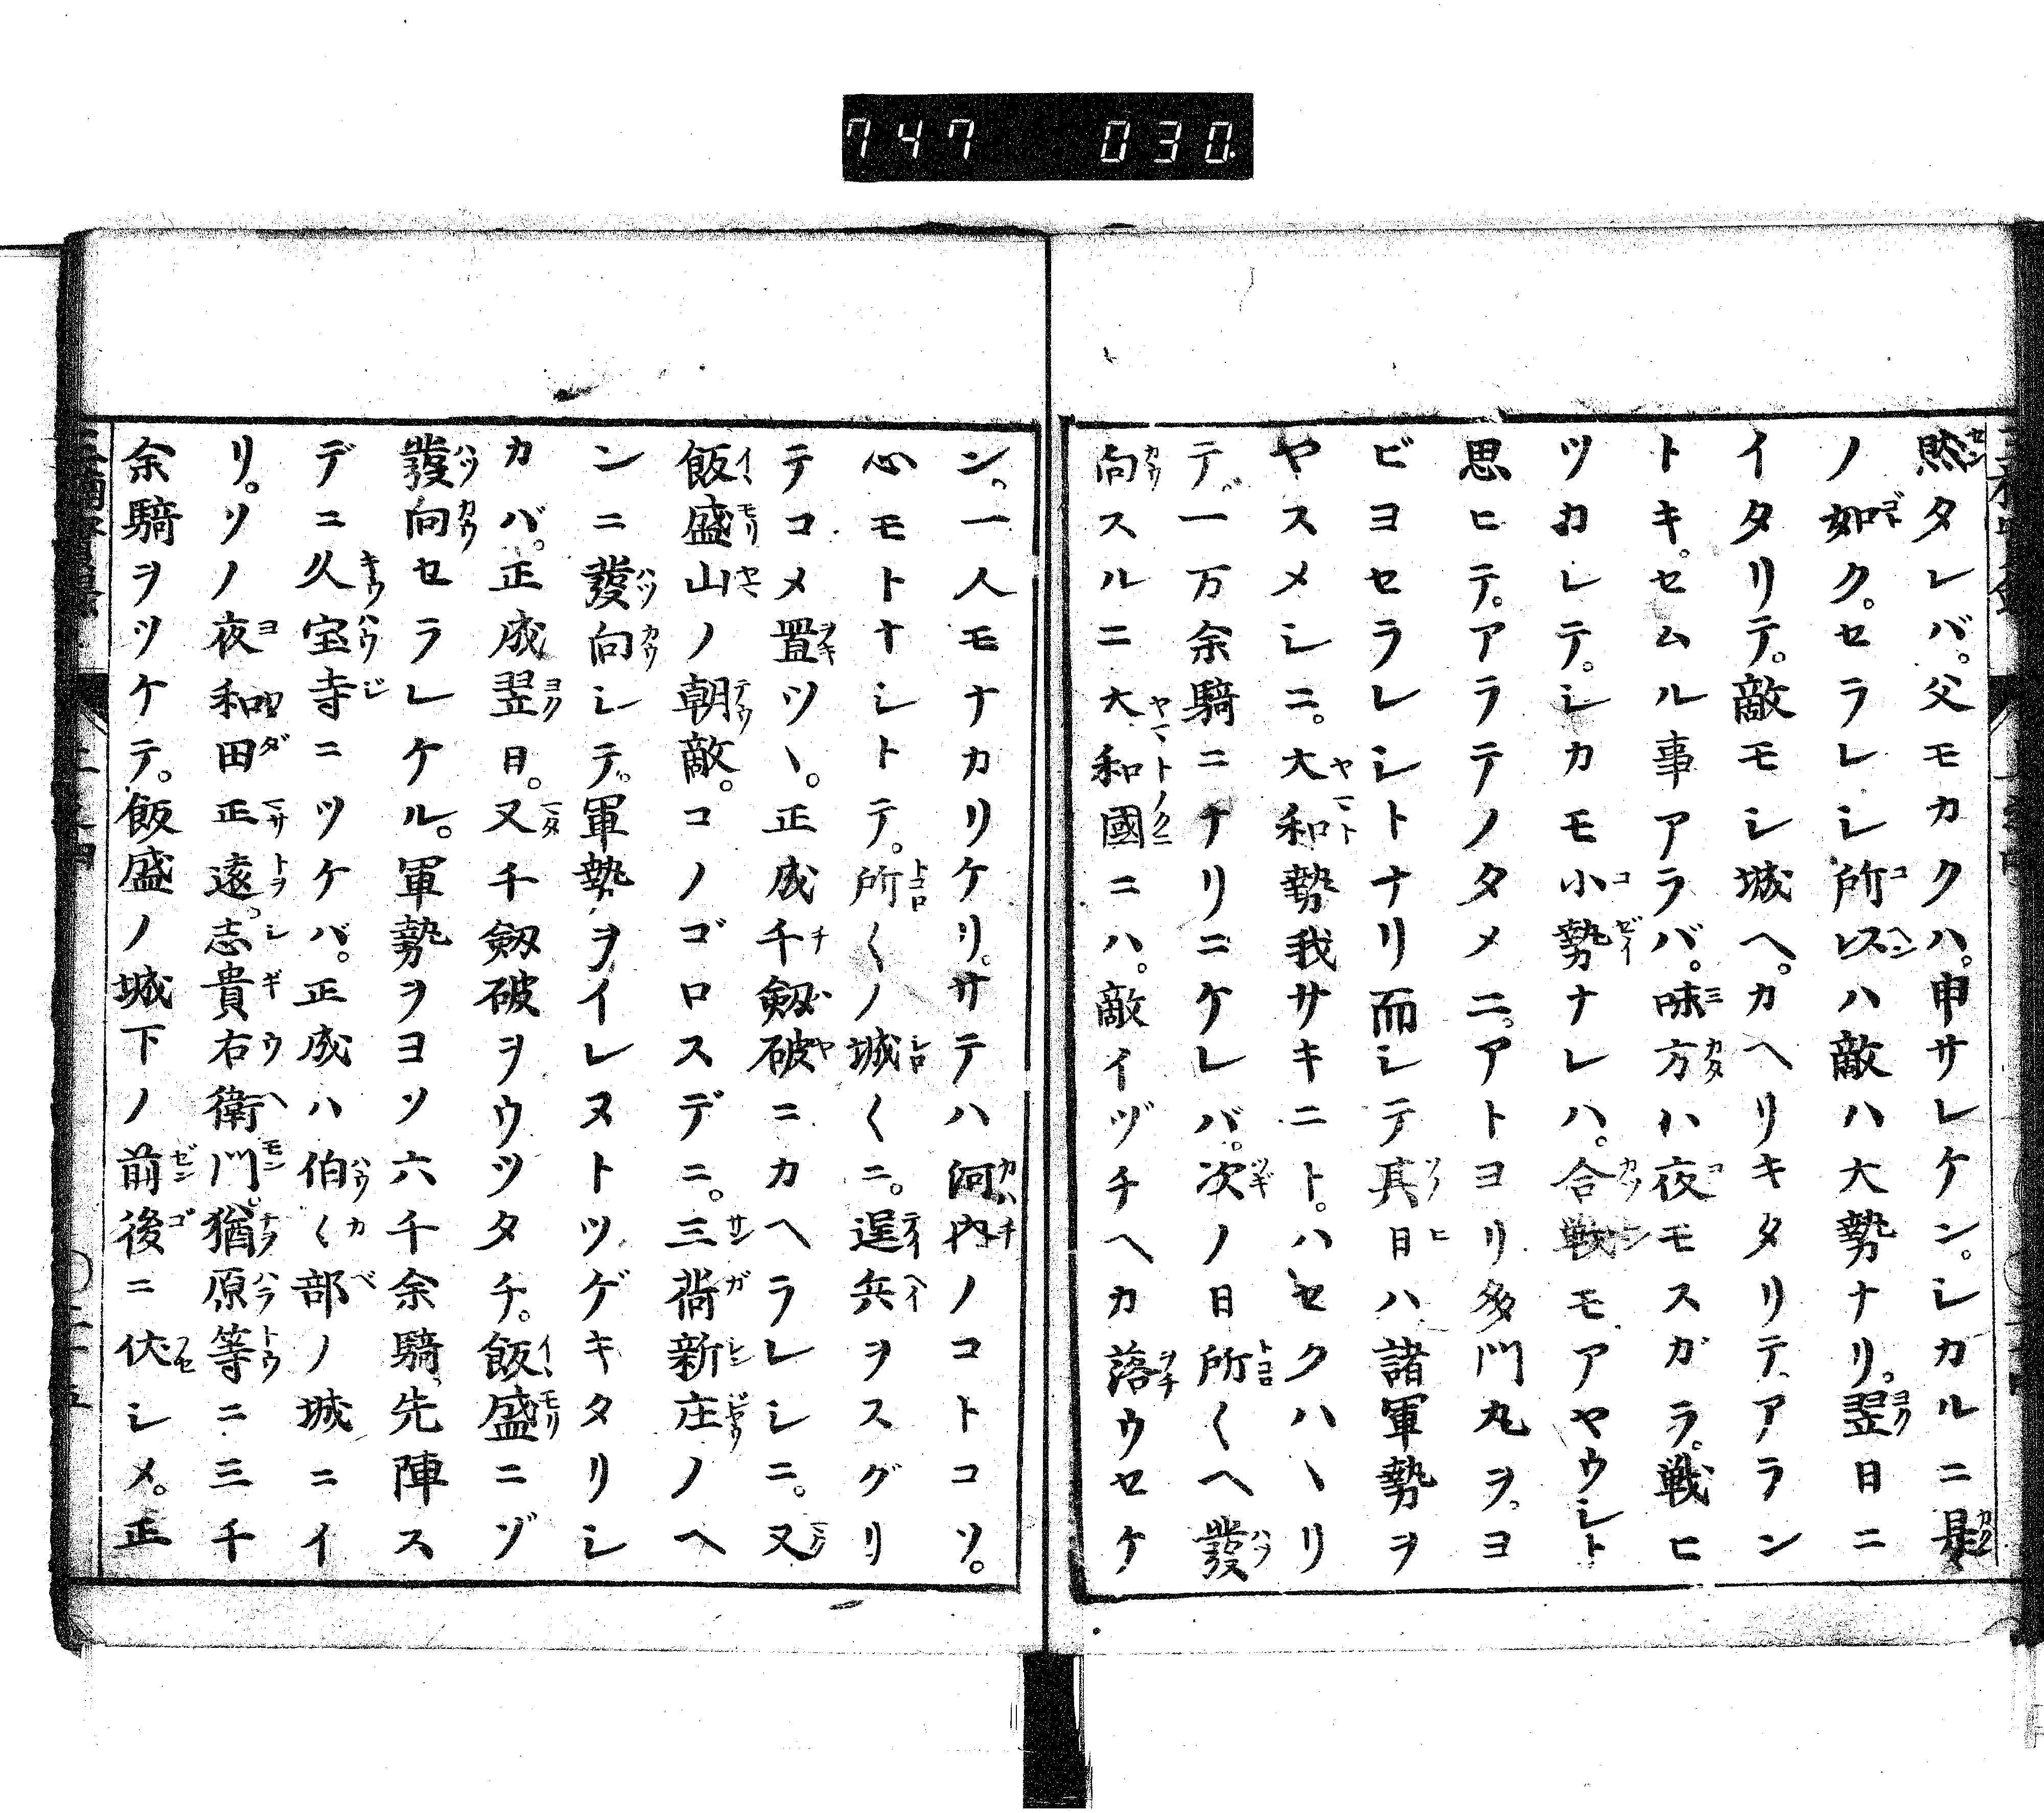 747 030
然タレバ。父モカクハ。申サレケン。シカルニ是
ノ如ク。セラレシ所レスハ敵ハ大勢ナリ。翌日ニ
イタリテ。敵モシ城ヘ。カヘリキタリテ、アラン
トキ。セムル事アラバ。味方ハ夜モスガラ。戦ヒ
ツカレテ。シカモ小勢ナレハ。合戦モアヤウシト
思ヒテ。アラテノタメニ。アトヨリ多門丸ヲ。ヨ
ビヨセラレシトナリ而シテ其日ハ諸軍勢ヲ
ヤスメシニ。大和勢我サキニト。ハセクハヽリ
テ。一万余騎ニナリニケレバ。次ノ日所〱ヘ發
向スルニ大和國ニハ。敵イヅチヘカ落ウセケ
ン。一人モナカリケリ。サテハ河内ノコトコソ。
心モトナシトテ。所〱ノ城〱ニ。逞兵ヲスグリ
テコメ置ツヽ。正成千剱破ニカヘラレシニ。又
飯盛山ノ朝敵。コノゴロスデニ。三箇新庄ノヘ
ンニ發向シテ。軍勢ヲイレヌトツゲキタリシ
カバ。正成翌日。又千剱破ヲウツタチ。飯盛ニゾ
發向セラレケル。軍勢ヲヨソ六千余騎、先陣ス
デニ久宝寺ニツケバ。正成ハ伯〱部ノ城ニイ
リ。ソノ夜和田正遠。志貴右衛門。猶原等ニ三千
余騎ヲツケテ。飯盛ノ城下ノ前後ニ伏シメ。正